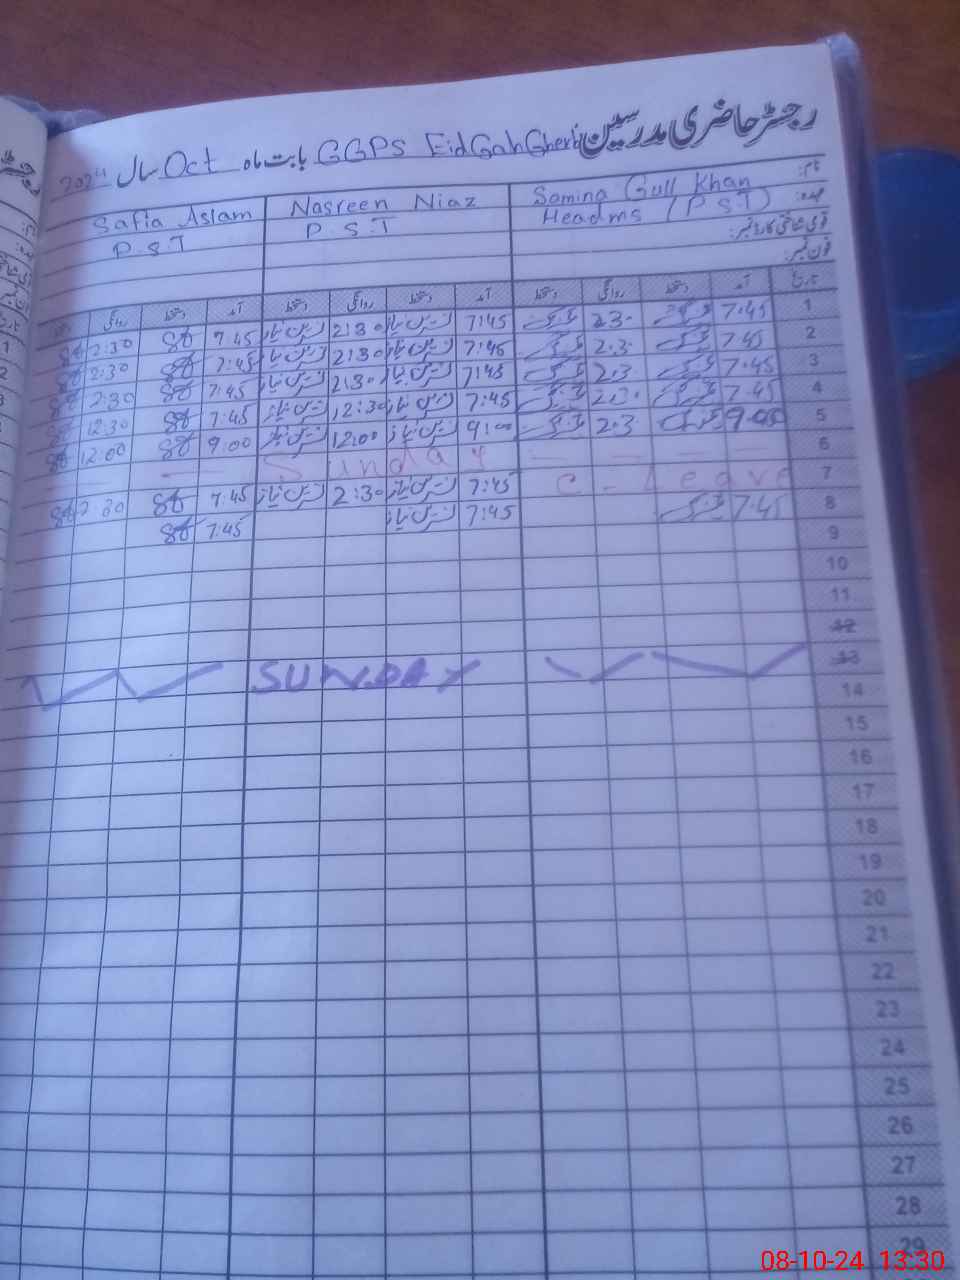 رجسٹر حاضری مدرسین GGPS EidGah Gherbi بابت ماہ Oct سال 2024
نام: Samina Gull Khan Nasreen Niaz Safia Aslam
عہدہ: Headms (P S T) P S T P S T
قومی شناختی کارڈ نمبر:
فون نمبر:
تاریخ آمد دستخط روانگی دستخط آمد دستخط روانگی دستخط آمد دستخط روانگی دستخط
1 7:45 2:30 7:45 نسرین نیاز 2:30 نسرین نیاز 7:45 2:30
2 7:45 2:30 7:45 نسرین نیاز 2:30 نسرین نیاز 7:45 2:30
3 7:45 2:30 7:45 نسرین نیاز 2:30 نسرین نیاز 7:45 2:30
4 7:45 2:30 7:45 نسرین نیاز 12:30 نسرین نیاز 7:45 12:30
5 9:00 2:3 9:00 نسرین نیاز 12:00 نسرین نیاز 9:00 12:00
6 Sunday
7 C-Leave 7:45 نسرین نیاز 2:30 نسرین نیاز 7:45 2:30
8 7:45 7:45 نسرین نیاز 7:45
9
10
11
12
13 SUNDAY
14
15
16
17
18
19
20
21
22
23
24
25
26
27
28
29
08-10-24 13:30